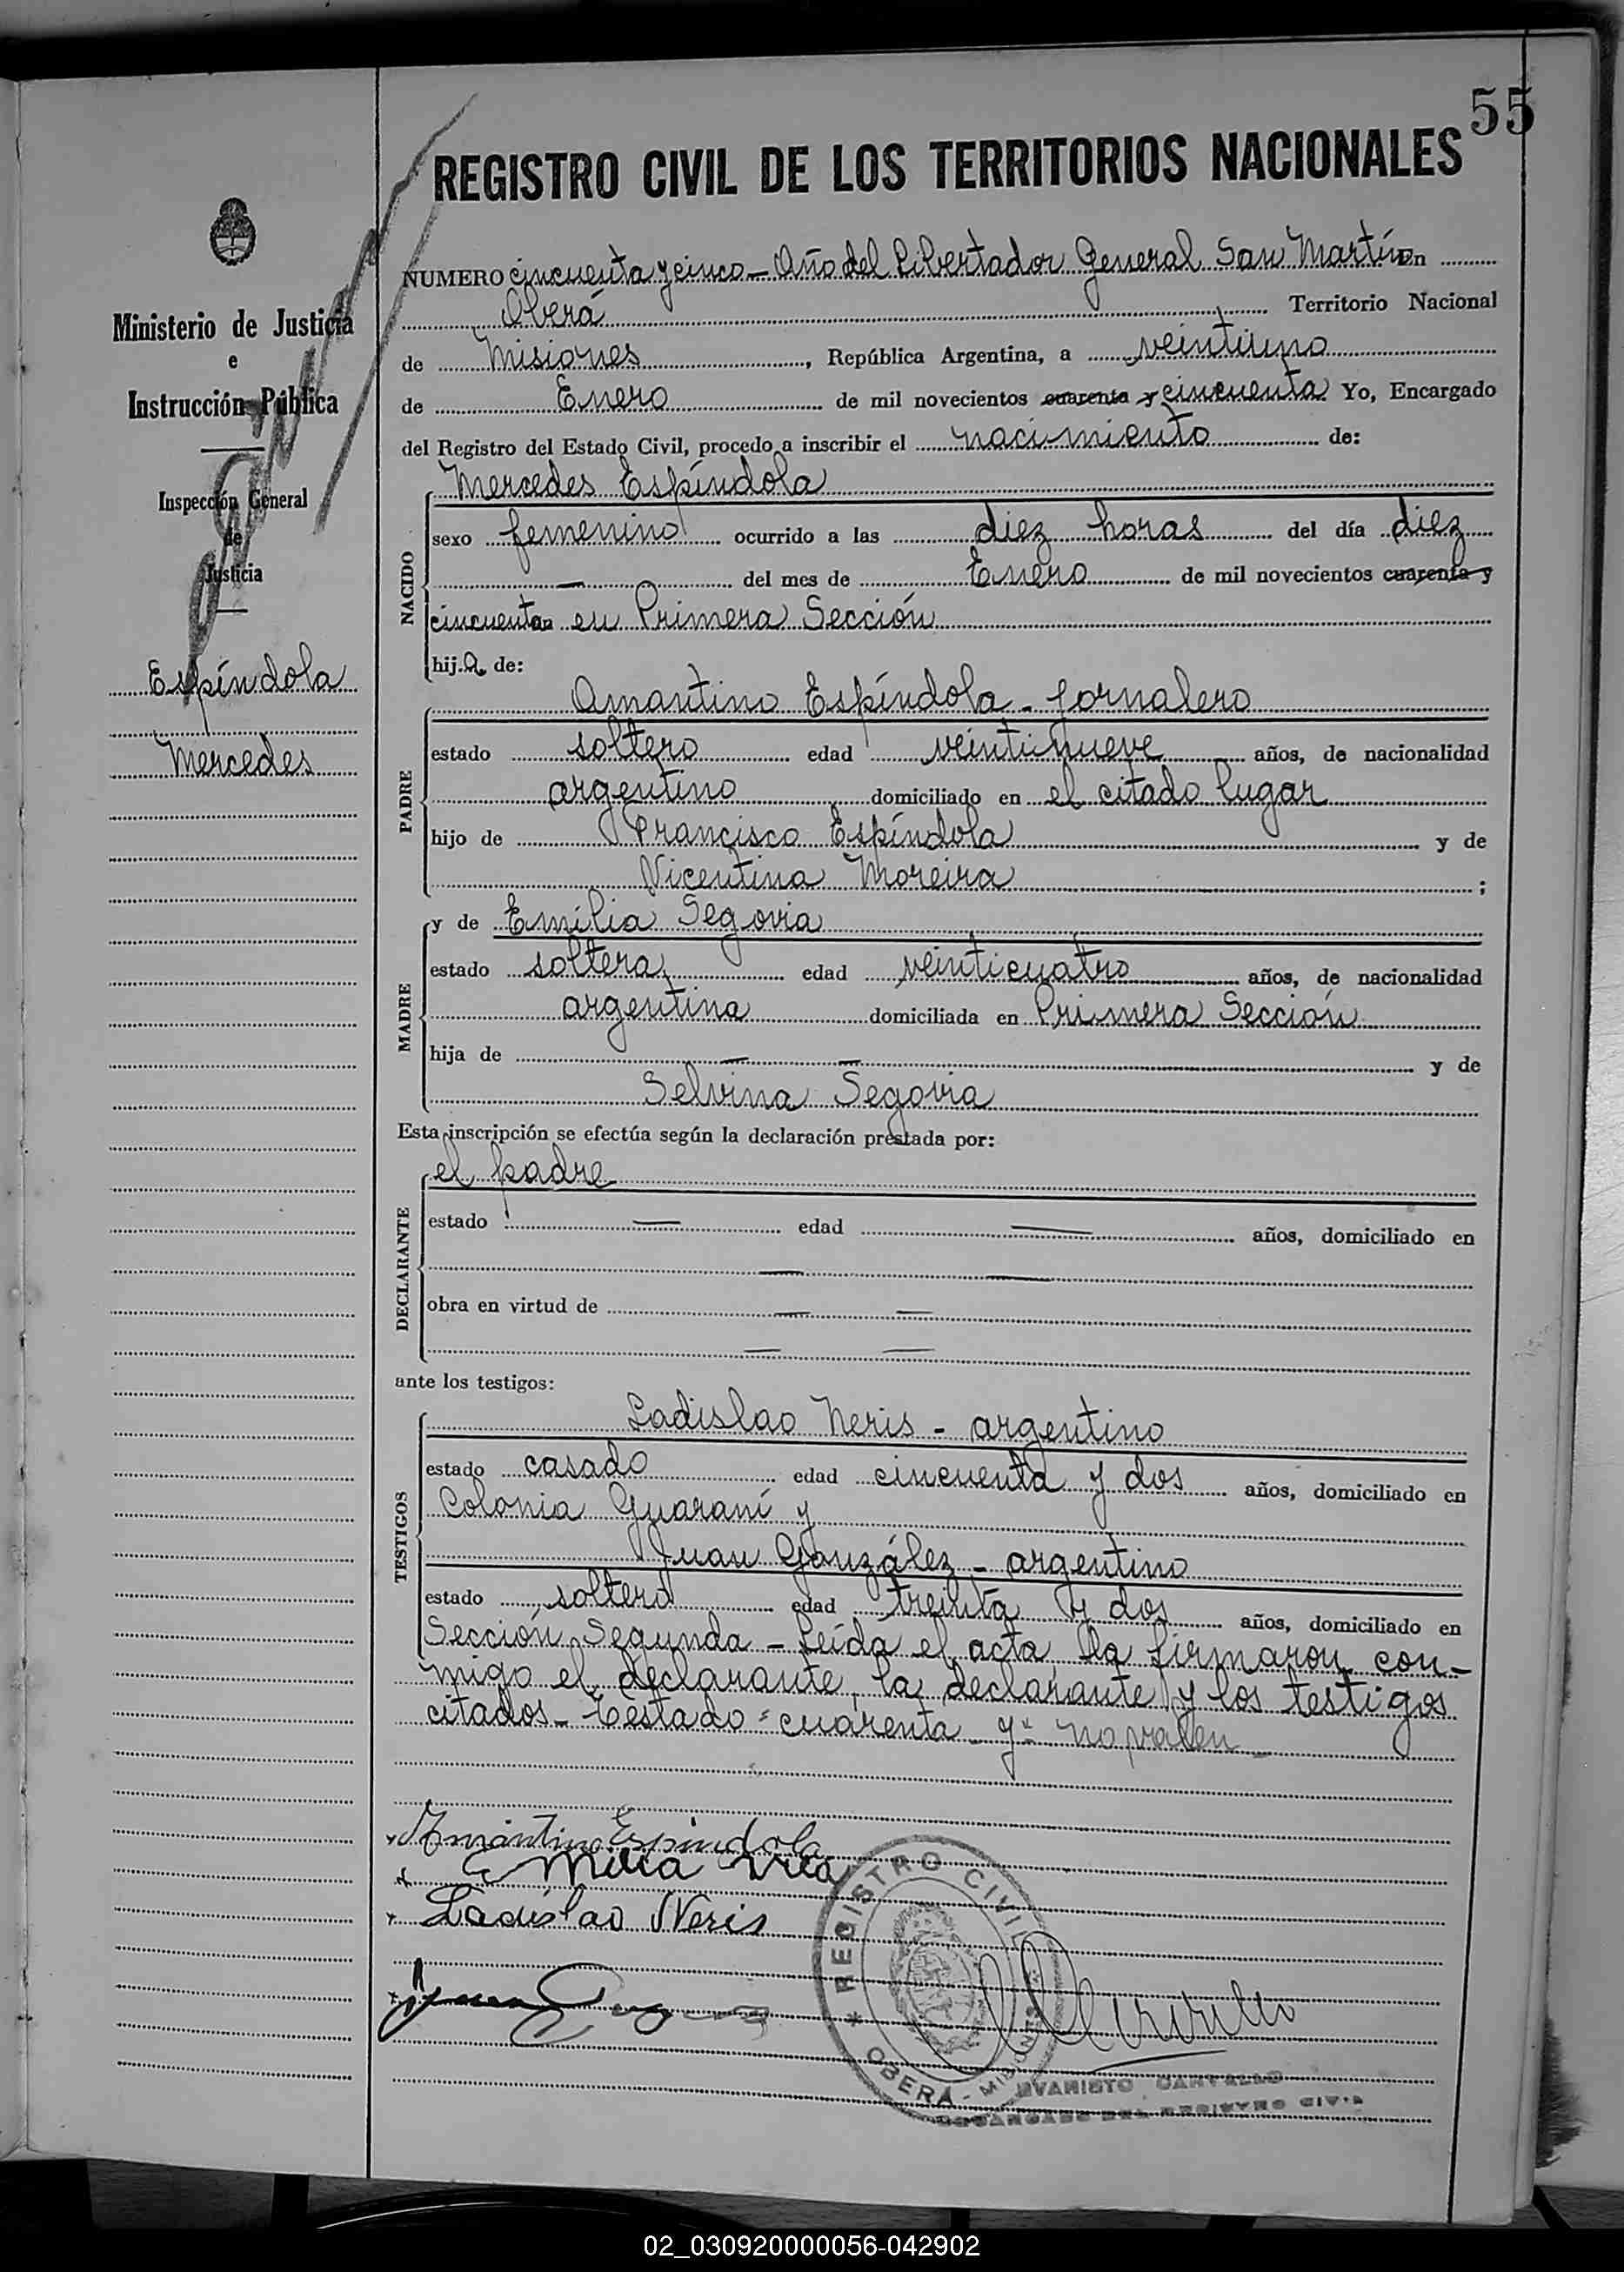 55
REGISTRO CIVIL DE LOS TERRITORIOS NACIONALES
Ministerio de Justicia
e
Instrucción Pública
Inspección General
de
Justicia
Espíndola
Mercedes
NUMERO cincuenta y cinco - Año del Libertador General San Martín en
Oberá Territorio Nacional
de Misiones, República Argentina, a veintiuno
de Enero de mil novecientos cuarenta y cincuenta Yo, Encargado
del Registro del Estado Civil, procedo a inscribir el nacimiento de:
NACIDO
Mercedes Espíndola
sexo femenino ocurrido a las diez horas del día diez
— del mes de Enero de mil novecientos cuarenta y
cincuenta en Primera Sección
hija de:
PADRE
Amantino Espíndola - Jornalero
estado soltero edad veintinueve años, de nacionalidad
argentino domiciliado en el citado lugar
hijo de Francisco Espíndola y de
Vicentina Moreira ;
MADRE
y de Emilia Segovia
estado soltera edad veinticuatro años, de nacionalidad
argentina domiciliada en Primera Sección
hija de — — y de
Selvina Segovia
Esta inscripción se efectúa según la declaración prestada por:
DECLARANTE
el padre
estado — edad — años, domiciliado en
— —
obra en virtud de — —
— —
ante los testigos:
TESTIGOS
Ladislao Neris - argentino
estado casado edad cincuenta y dos años, domiciliado en
Colonia Guaraní y
Juan González - argentino
estado soltero edad treinta y dos años, domiciliado en
Sección Segunda - Leída el acta la firmaron con-
migo el declarante, la declarante y los testigos
citados - Testado "cuarenta y" no valen -
Amantino Espindola
Emilia
Ladislao Neris
Juan
REGISTRO CIVIL
OBERA - MISIONES
EVARISTO
ENCARGADO DEL REGISTRO CIVIL
02_030920000056-042902